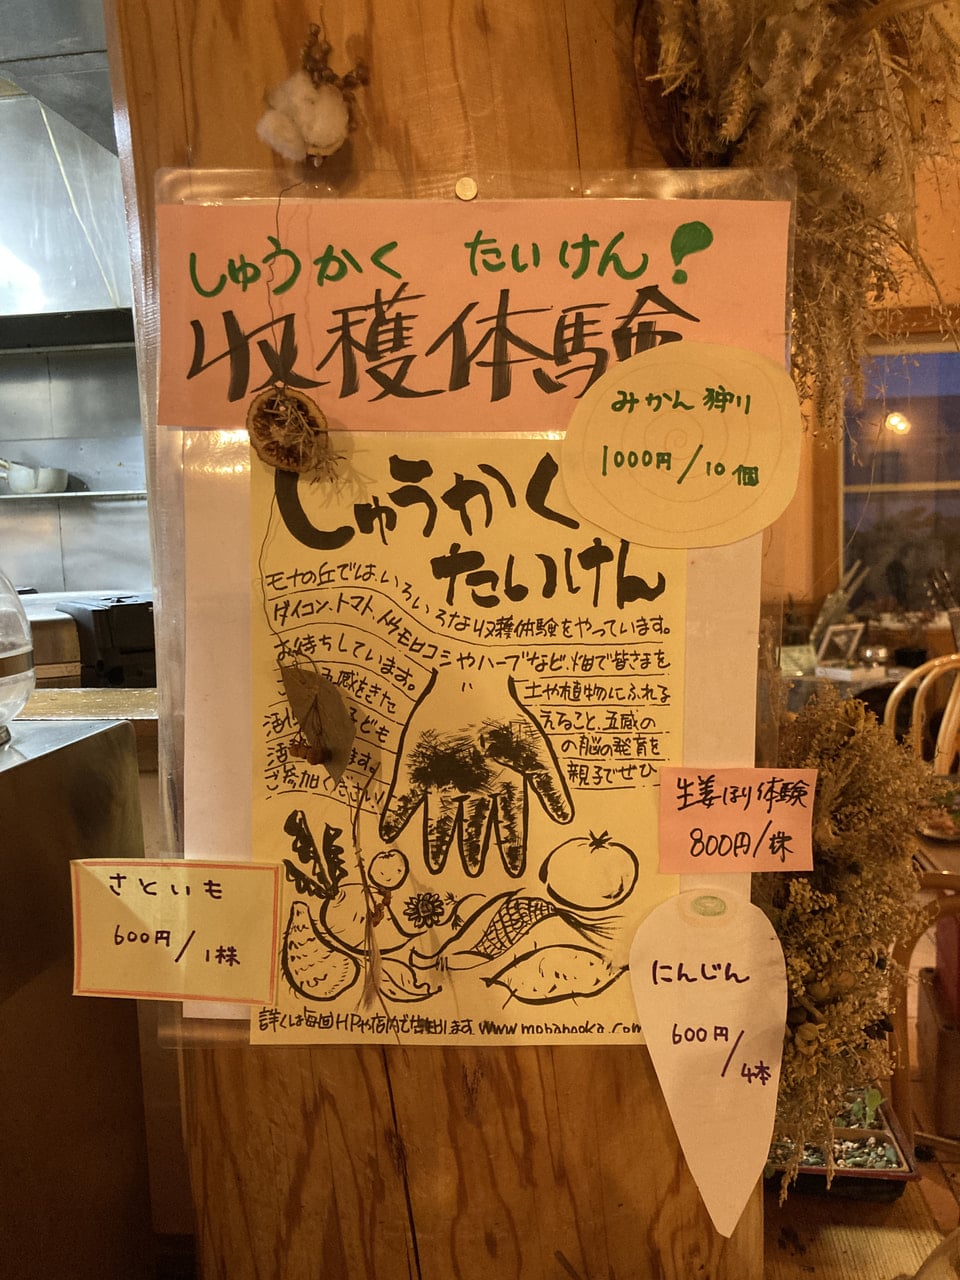 しゅうかく たいけん!
収穫体験
みかん狩り
1000円/10個
しゅうかく
たいけん
モナの丘では、いろいろな収穫体験をやっています。
ダイコン、トマト、トウモロコシやハーブなど、畑で皆さまを
お待ちしています。
土や植物にふれる
五感をきた
えること、五感の
子ども
の脳の発育を
ます。
親子でぜひ
ご参加ください!
生姜ほり体験
800円/株
さといも
600円/1株
にんじん
600円/4本
詳しくは毎回HPや店内で